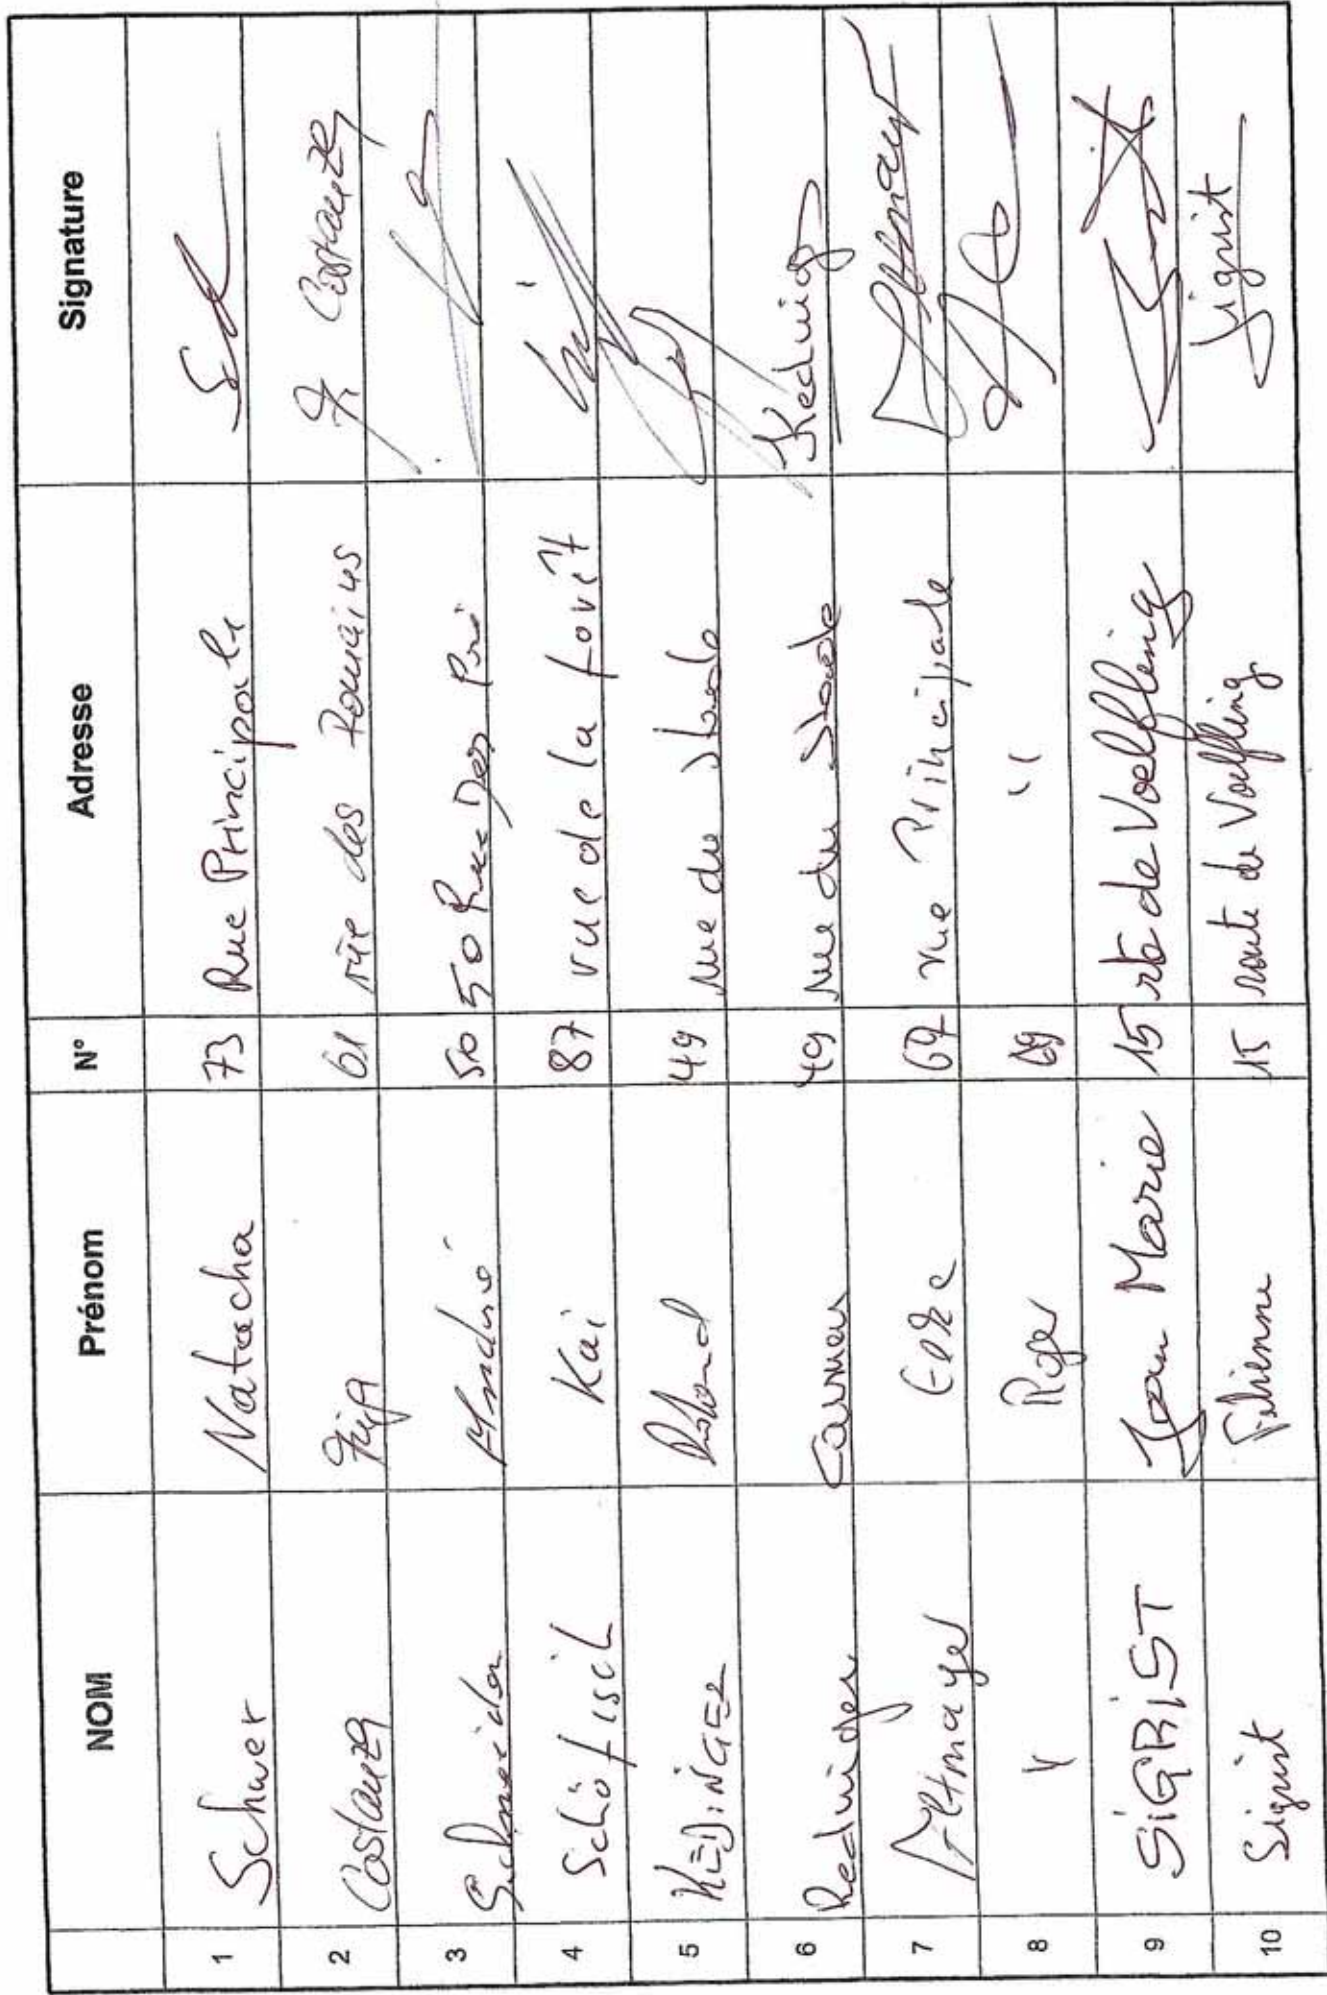 NOM Prénom N° Adresse Signature
1 Schwer Natacha 73 Rue Principale
2 Costanza 61 rue des Romains Costanza
3 Schneider André 50 50 Rue Des
4 Schöfisch Kai 87 rue de la forêt
5 KEDINGER Roland 49 rue du Stade
6 Kedinger Carmen 49 rue du Stade Keding
7 Altmayer 69 rue Principale Altmayer
8 " Roger 69 "
9 SIGRIST Jean Marie 15 rte de Voelfling
10 Sigrist Fabienne 15 route de Voelfling Sigrist